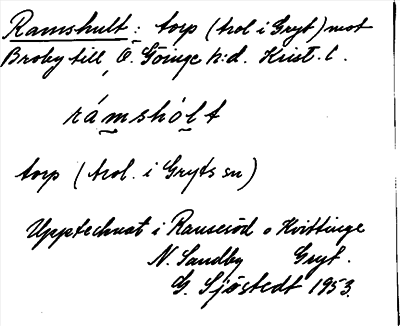 Ramshult: torp (trol i Gryt) mot
Broby till, Ö. Göinge h:d. Krist. l.
rámshólt
torp (trol. i Gryts sn)
Upptecknat i Ramseröd o Hvittinge
N. Sandby Gryt.
G. Sjöstedt 1953.